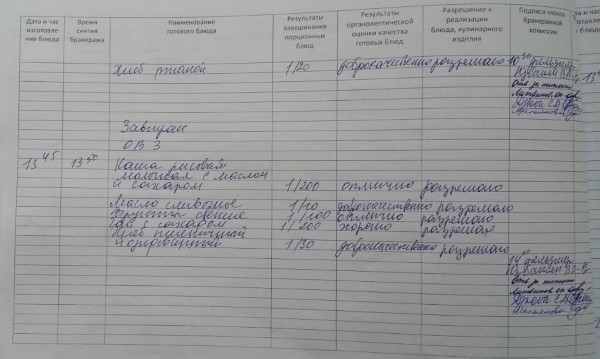 Дата и час изготовления блюда | Время снятия бракеража | Наименование готового блюда | Результаты взвешивания порционных блюд | Результаты органолептической оценки качества готовых блюд | Разрешение к реализации блюда, кулинарного изделия | Подписи членов бракеражной комиссии
Хлеб ржаной 1/20 доброкачественно разрешаю 10 30 фельдшер
Завтрак
ОВЗ
13 45 13 50 Каша рисовая
молочная с маслом
и сахаром 1/200 отлично разрешаю
Масло сливочное 1/10 доброкачественно разрешаю
Фрукты свежие 1/100 отлично разрешаю
Чай с сахаром 1/200 хорошо разрешаю
Хлеб пшеничный
йодированный 1/30 доброкачественно разрешаю
фельдшер